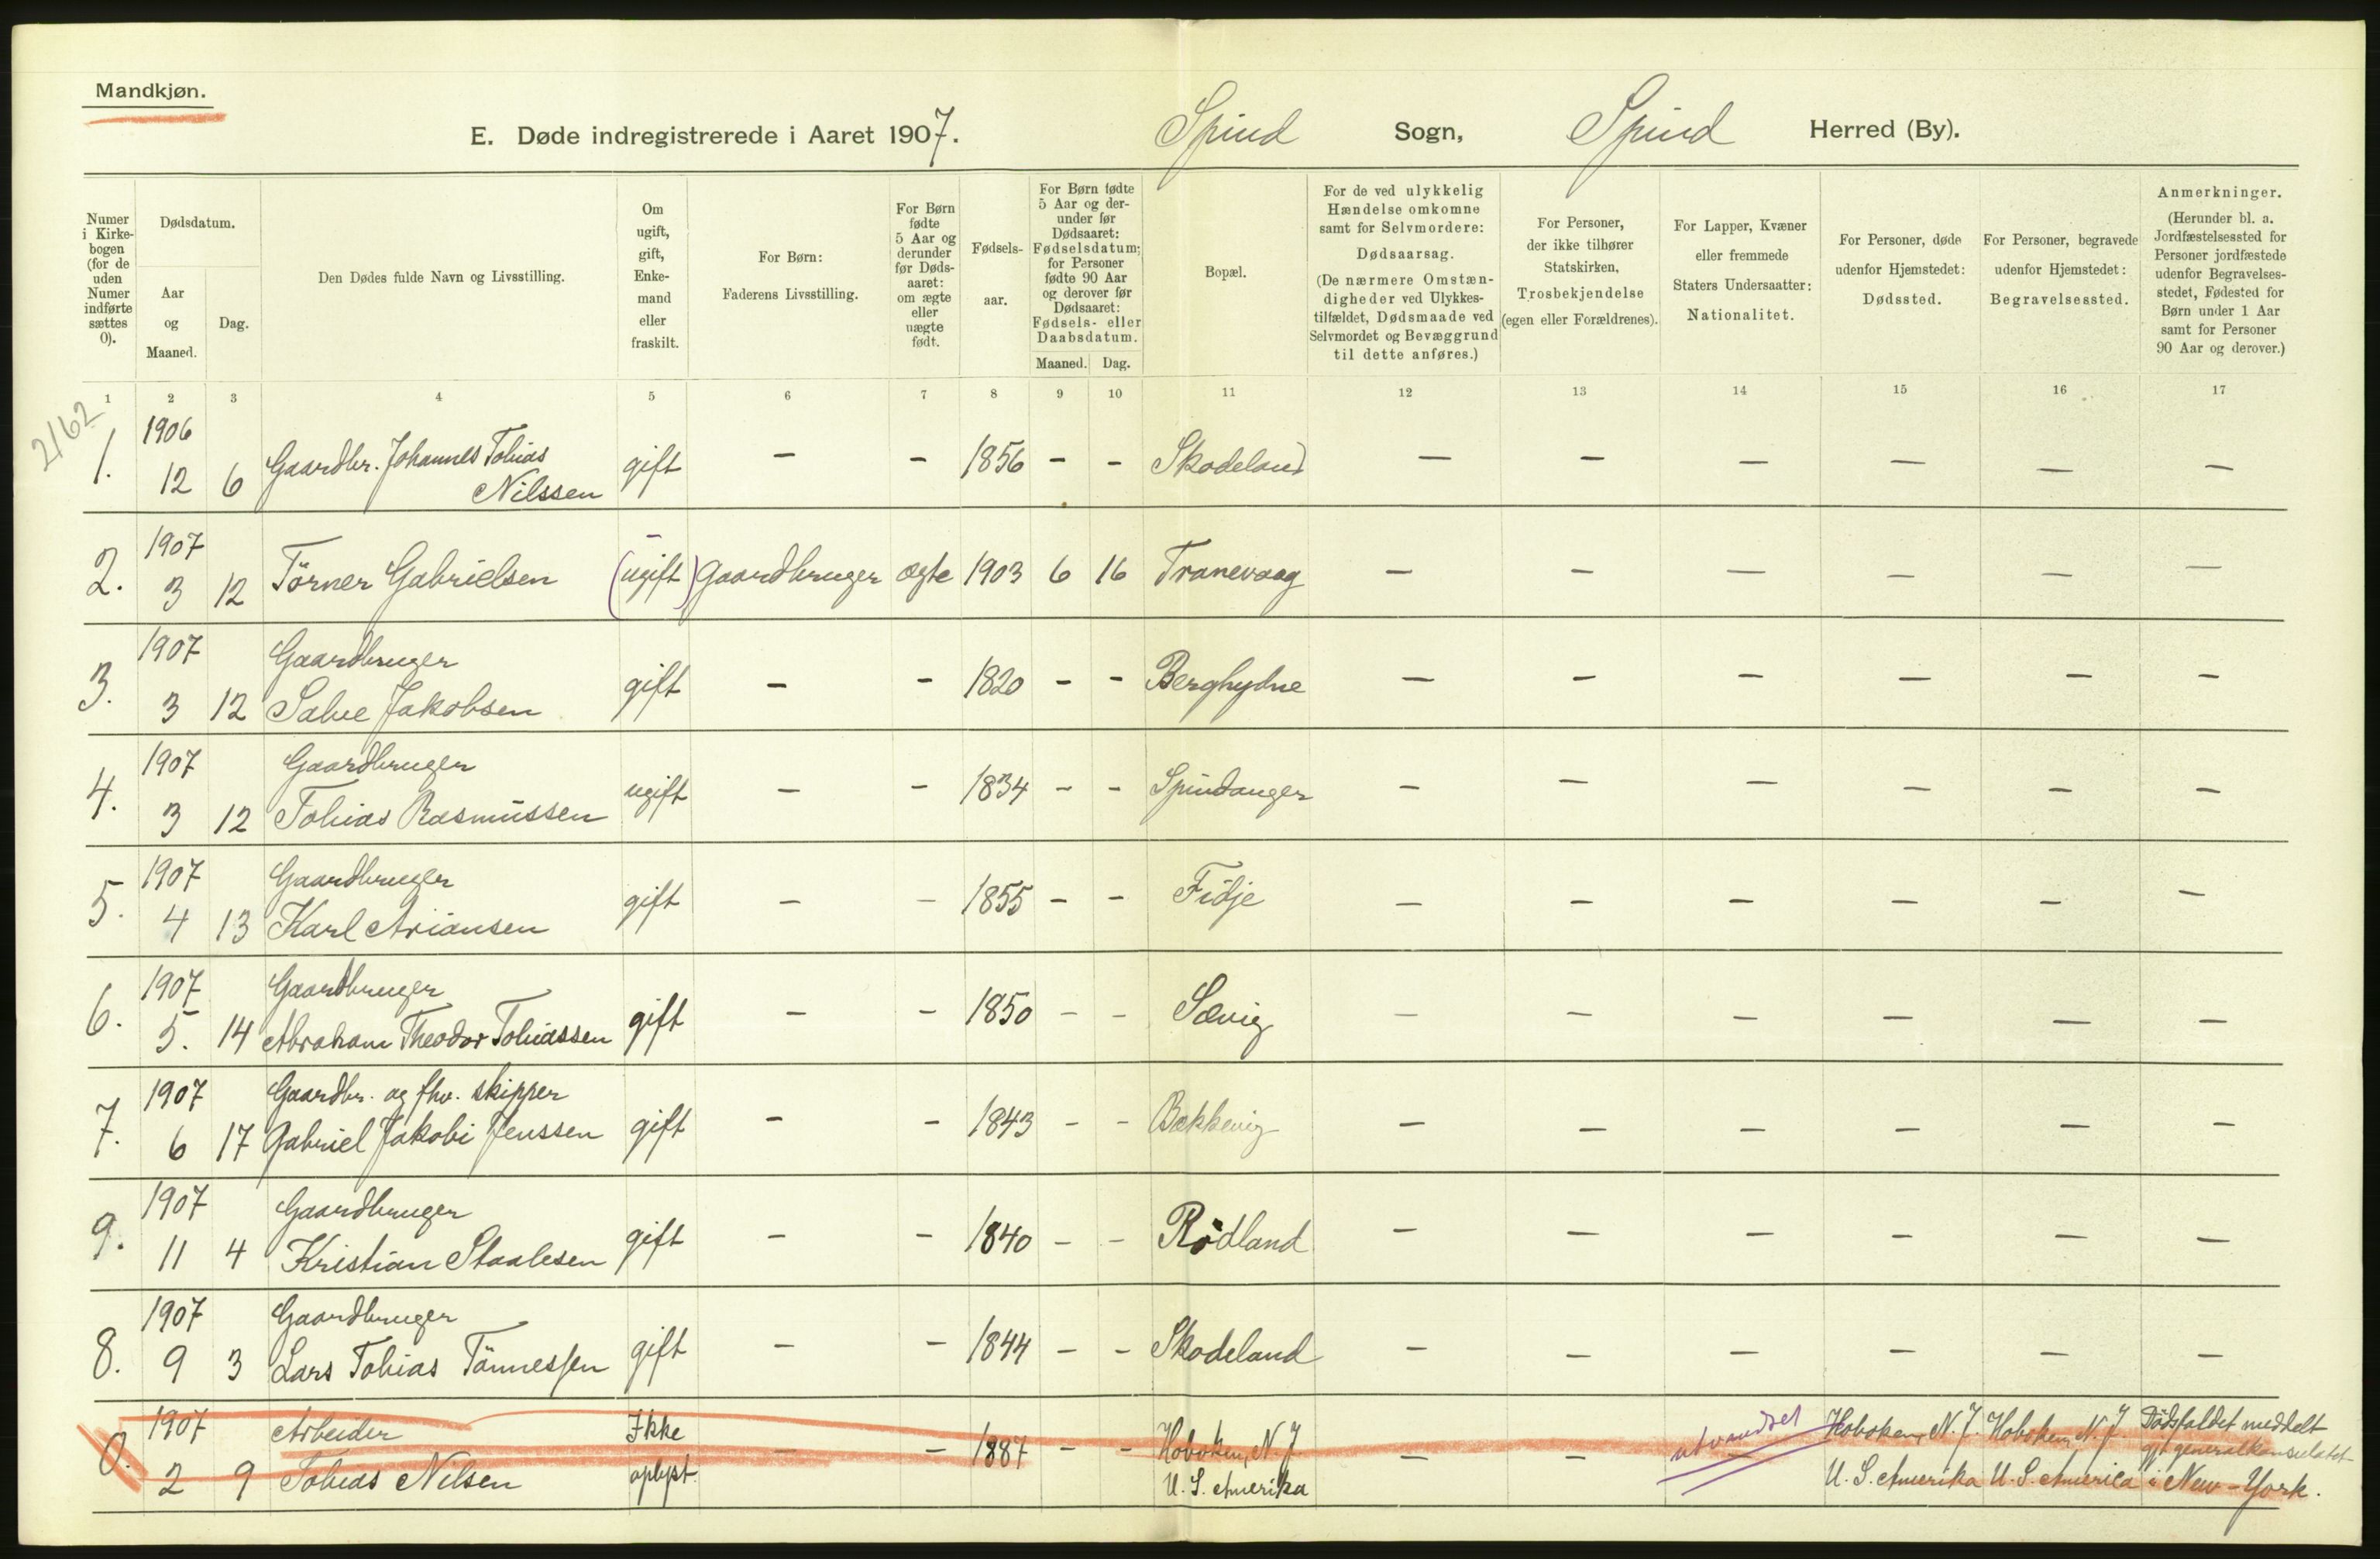 Mandkjøn.
E. Døde indregistrerede i Aaret 1907. Spind Sogn, Spind Herred (By).
Numer i Kirkebogen (for de uden Numer indførte sættes 0).
Dødsdatum.
Aar og Maaned.
Dag.
Den Dødes fulde Navn og Livsstilling.
Om ugift, gift, Enkemand eller fraskilt.
For Børn: Faderens Livsstilling.
For Børn fødte 5 Aar og derunder før Dødsaaret: om ægte eller uægte født.
Fødselsaar.
For Børn fødte 5 Aar og derunder før Dødsaaret: Fødselsdatum; for Personer fødte 90 Aar og derover før Dødsaaret: Fødsels- eller Daabsdatum.
Maaned. Dag.
Bopæl.
For de ved ulykkelig Hændelse omkomne samt for Selvmordere: Dødsaarsag. (De nærmere Omstændigheder ved Ulykkestilfældet, Dødsmaade ved Selvmordet og Bevæggrund til dette anføres.)
For Personer, der ikke tilhører Statskirken, Trosbekjendelse (egen eller Forældrenes).
For Lapper, Kvæner eller fremmede Staters Undersaatter: Nationalitet.
For Personer, døde udenfor Hjemstedet: Dødssted.
For Personer, begravede udenfor Hjemstedet: Begravelsessted.
Anmerkninger. (Herunder bl. a. Jordfæstelsessted for Personer jordfæstede udenfor Begravelsesstedet, Fødested for Børn under 1 Aar samt for Personer 90 Aar og derover.)
1 2 3 4 5 6 7 8 9 10 11 12 13 14 15 16 17
2/62
1. 1906 12 6 Gaardbr. Johannes Tobias Nilssen gift – – 1856 – – Skodeland – – – – – –
2. 1907 3 12 Törner Gabrielsen (ugift) Gaardbruger ægte 1903 6 16 Tranevaag – – – – – –
3. 1907 3 12 Gaardbruger Salve Jakobsen gift – – 1820 – – Berghydne – – – – – –
4. 1907 3 12 Gaardbruger Tobias Rasmussen ugift – – 1834 – – Spindanger – – – – – –
5. 1907 4 13 Gaardbruger Karl Ariansen gift – – 1855 – – Fidje – – – – – –
6. 1907 5. 14 Gaardbruger Abraham Theodor Tobiassen gift – – 1850 – – Sævig – – – – – –
7. 1907 6 17 Gaardbr. og fhv. skipper Gabriel Jakobi Jenssen gift – – 1843 – – Bækkevig – – – – – –
9. 1907 11 4 Gaardbruger Kristian Staalesen gift – – 1840 – – Rödland – – – – – –
8. 1907 9 3 Gaardbruger Lars Tobias Tönnessen gift – – 1844 – – Skodeland – – – – – –
0. 1907 2 9 Arbeider Tobias Nilsen Ikke oplyst. – – 1887 – – Hoboken, N. J. U. S. Amerika – – – utvandret Hoboken, N. J. U. S. Amerika Hoboken, N. J. U. S. America Dödsfaldet meddelt gj. generalkonsulatet i New-York.